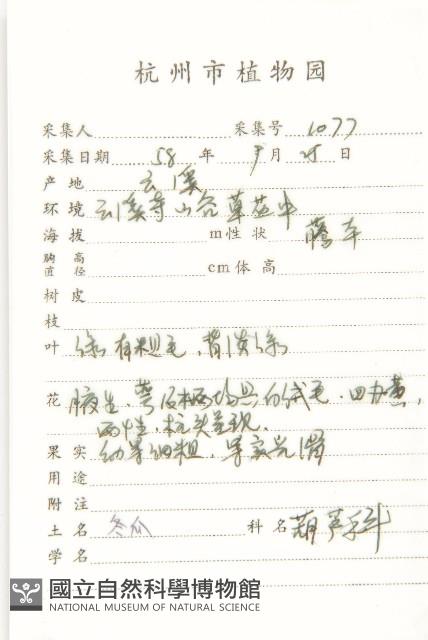 杭州市植物园
采集人 采集号 1077
采集日期 58 年 月 25 日
产地 云溪
环境 云溪寺山谷草丛中
海拔 m性状 藤本
胸高直径 cm体高
树皮
枝
叶 绿有粗毛,背淡绿
花 腋生,萼及柄均具白绒毛,四瓣黄,
两性,
果实
用途
附注
土名 冬瓜 科名 葫芦科
学名
國立自然科學博物館
NATIONAL MUSEUM OF NATURAL SCIENCE